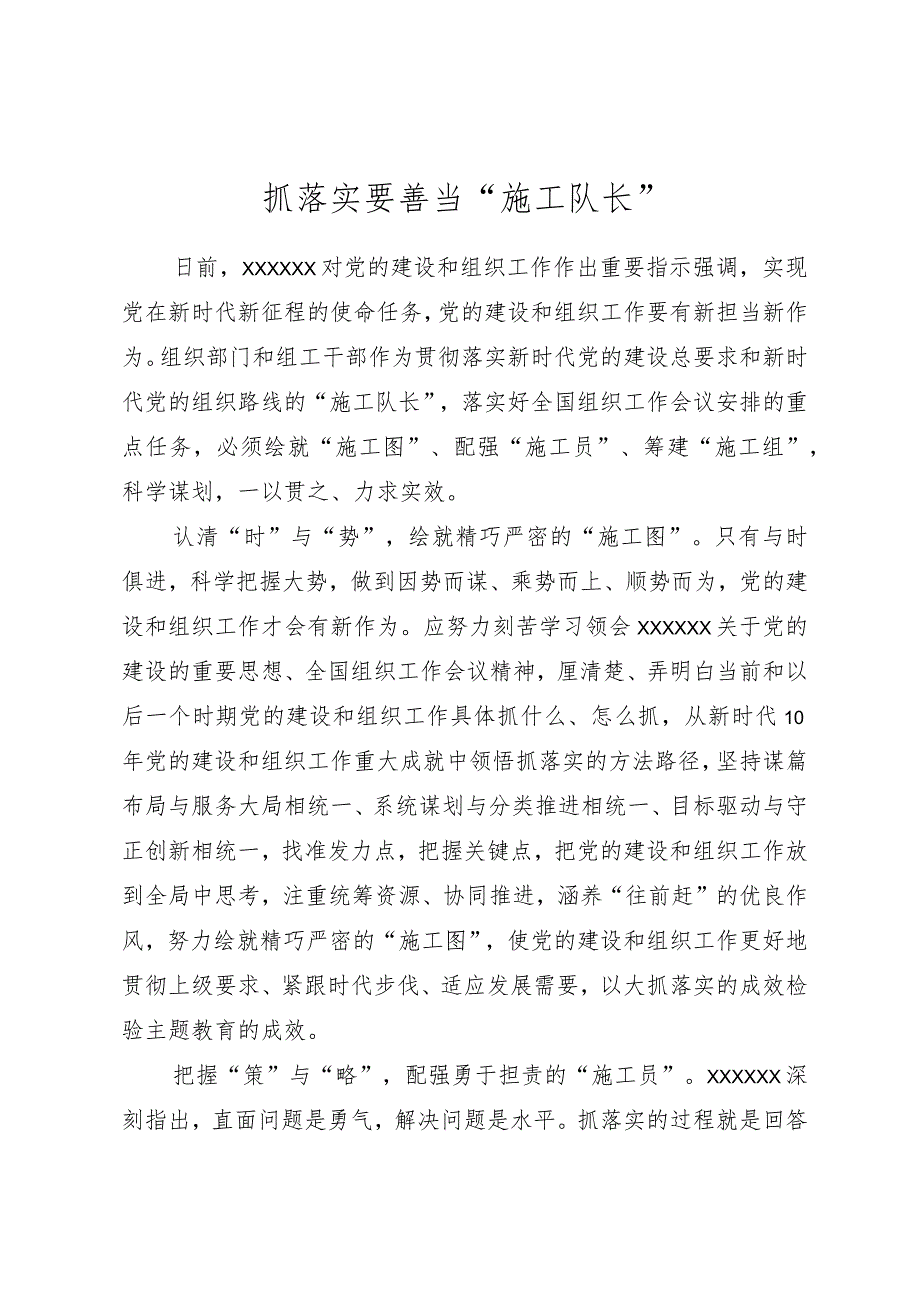 抓落实要善当“施工队长”
日前，XXXXXX对党的建设和组织工作作出重要指示强调，实现
党在新时代新征程的使命任务，党的建设和组织工作要有新担当新作
为。组织部门和组工干部作为贯彻落实新时代党的建设总要求和新时
代党的组织路线的“施工队长”，落实好全国组织工作会议安排的重
点任务，必须绘就“施工图”、配强“施工员”、筹建“施工组”，
科学谋划，一以贯之、力求实效。
认清“时”与“势”，绘就精巧严密的“施工图”。只有与时
俱进，科学把握大势，做到因势而谋、乘势而上、顺势而为，党的建
设和组织工作才会有新作为。应努力刻苦学习领会XXXXXX关于党的
建设的重要思想、全国组织工作会议精神，厘清楚、弄明白当前和以
后一个时期党的建设和组织工作具体抓什么、怎么抓，从新时代10
年党的建设和组织工作重大成就中领悟抓落实的方法路径，坚持谋篇
布局与服务大局相统一、系统谋划与分类推进相统一、目标驱动与守
正创新相统一，找准发力点，把握关键点，把党的建设和组织工作放
到全局中思考，注重统筹资源、协同推进，涵养“往前赶”的优良作
风，努力绘就精巧严密的“施工图”，使党的建设和组织工作更好地
贯彻上级要求、紧跟时代步伐、适应发展需要，以大抓落实的成效检
验主题教育的成效。
把握“策”与“略”，配强勇于担责的“施工员”。XXXXXX深
刻指出，直面问题是勇气，解决问题是水平。抓落实的过程就是回答